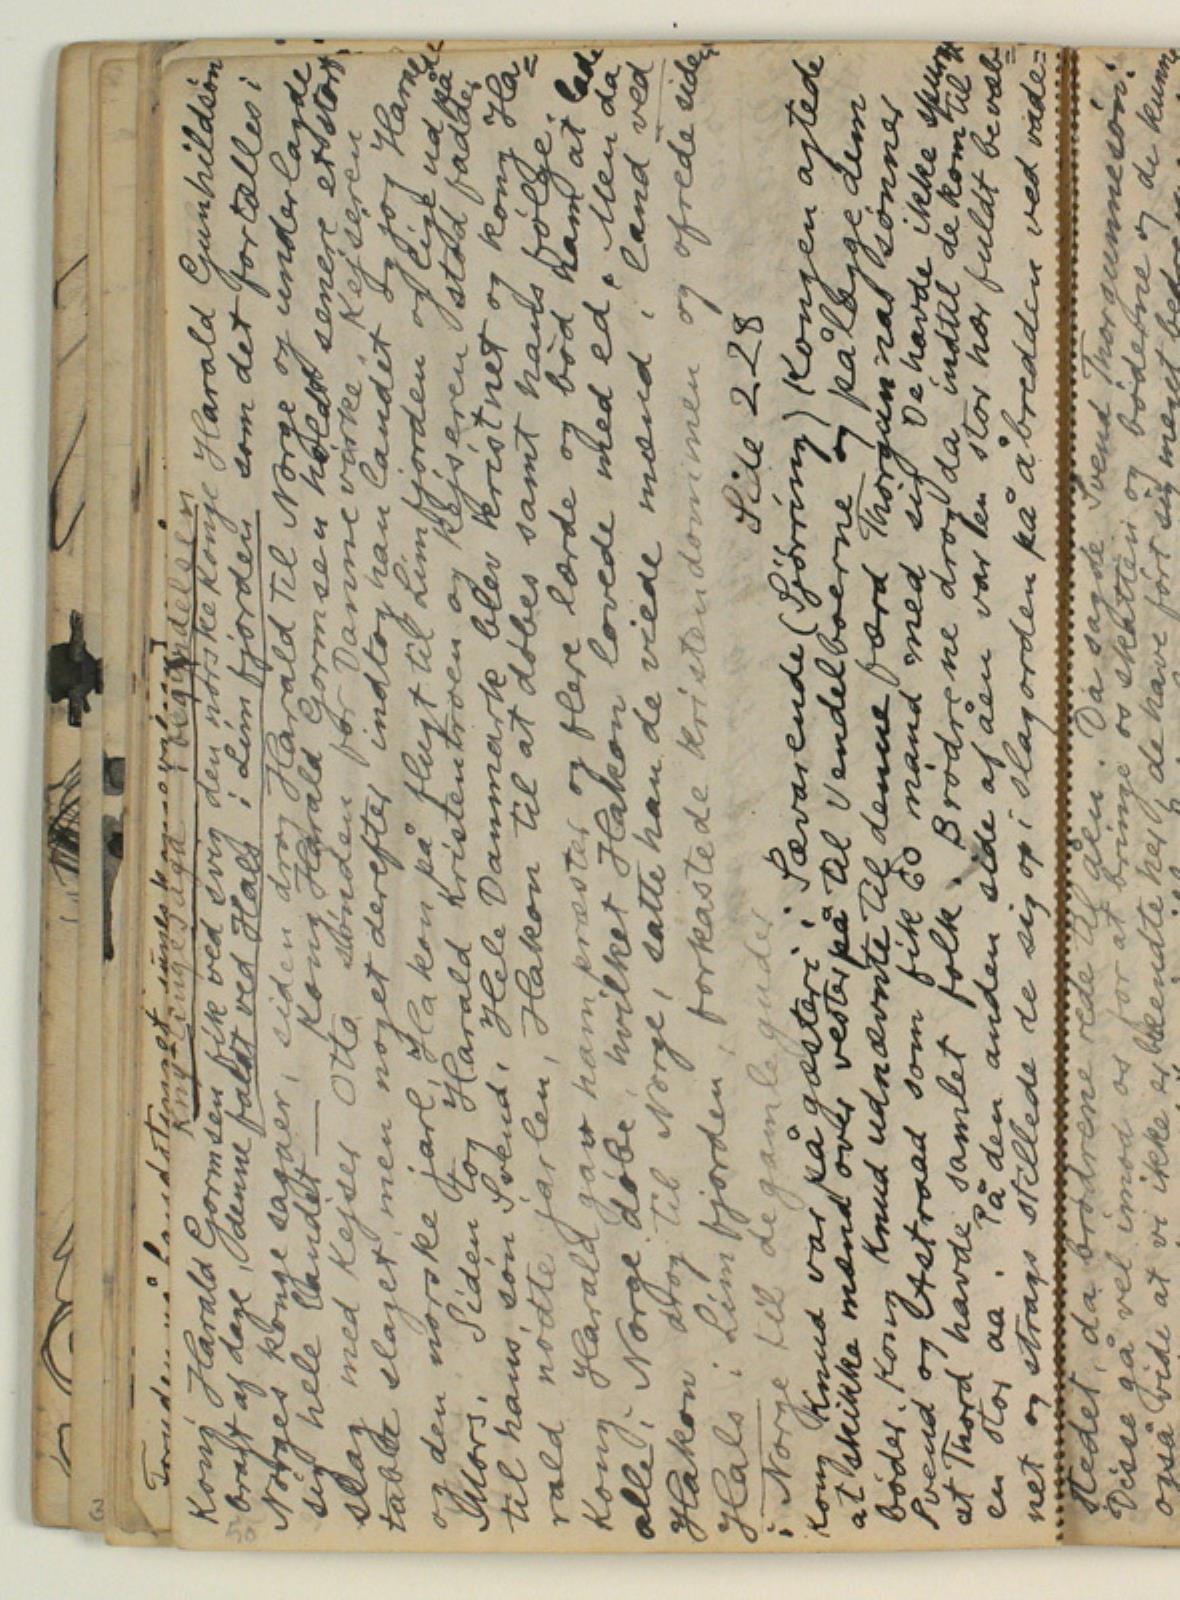 Knytlingesaga
Kong Harald Gormsen fik ved svig den norske konge Harald Gunhildsön
bragt af dage, denne faldt ved Hals i Limfjorden som det fortælles i
Norges konge sagaer, siden drog Harald til Norge og underlagde
sig hele landet — Kong Harald Gormsen holdt senere et stort
slag med Kejser Otto sönden for Dannevirke, Kejseren
tabte slaget, men noget derefter indtog han landet og jog Harald
og den norske jarl, Hakon på flugt til Limfjorden og lige ud på
Mors. Siden tog Harald kristentroen og Kejseren stod fadder
til hans sön Svend, Hele Danmark blev kristnet og kong Ha=
rald nödte jarlen, Hakon til at döbes samt hans fölge.
Kong Harald gav ham præster og flere lærde og böd ham at lade
alle i Norge döbe, hvilket Hakon lovede med ed. Men da
Hakon drog til Norge, satte han de viede mænd i land ved
Hals i Limfjorden, forkastede kristendommen og ofrede siden
i Norge til de gamle guder
Side 228
Kong Knud var på gæsteri i Sævarende (Sjörring) Kongen agtede
at skikke mænd over vesterpå til Vendelboerne og pålægge dem
böder. Kong Knud udnævnte til denne færd Thorgunnas sönner
Svend og Astraad som fik 60 mand med sig. De havde ikke spurgt
at Thord havde samlet folk. Brödrene drog da indtil de kom til
en stor aa. På den anden side af åen var en stor hær fuldt bevæb=
net og straks stillede de sig op i slagorden på åbredden ved vade=
stedet, da brödrene rede til åen. Da sagde Svend Thorgunnesön:
Disse gå vel imod os for at bringe os skatten og böderne og de kunne
også vide at vi ikke er bekendte her, de have fört sig meget bedre